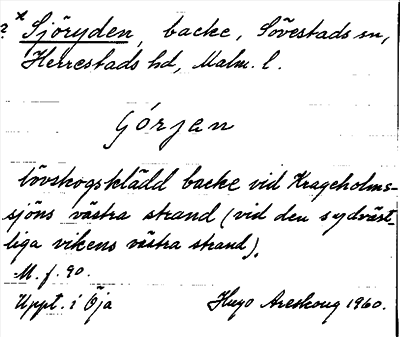 ? * Sjöryden, backe, Sövestads sn,
Herrestads hd, Malm. l.
Görjan
lövskogsklädd backe vid Krageholms-
sjöns västra strand (vid den sydväst-
liga vikens västra strand).
M. f. 90.
Uppt. i Öja Hugo Areskoug 1960.